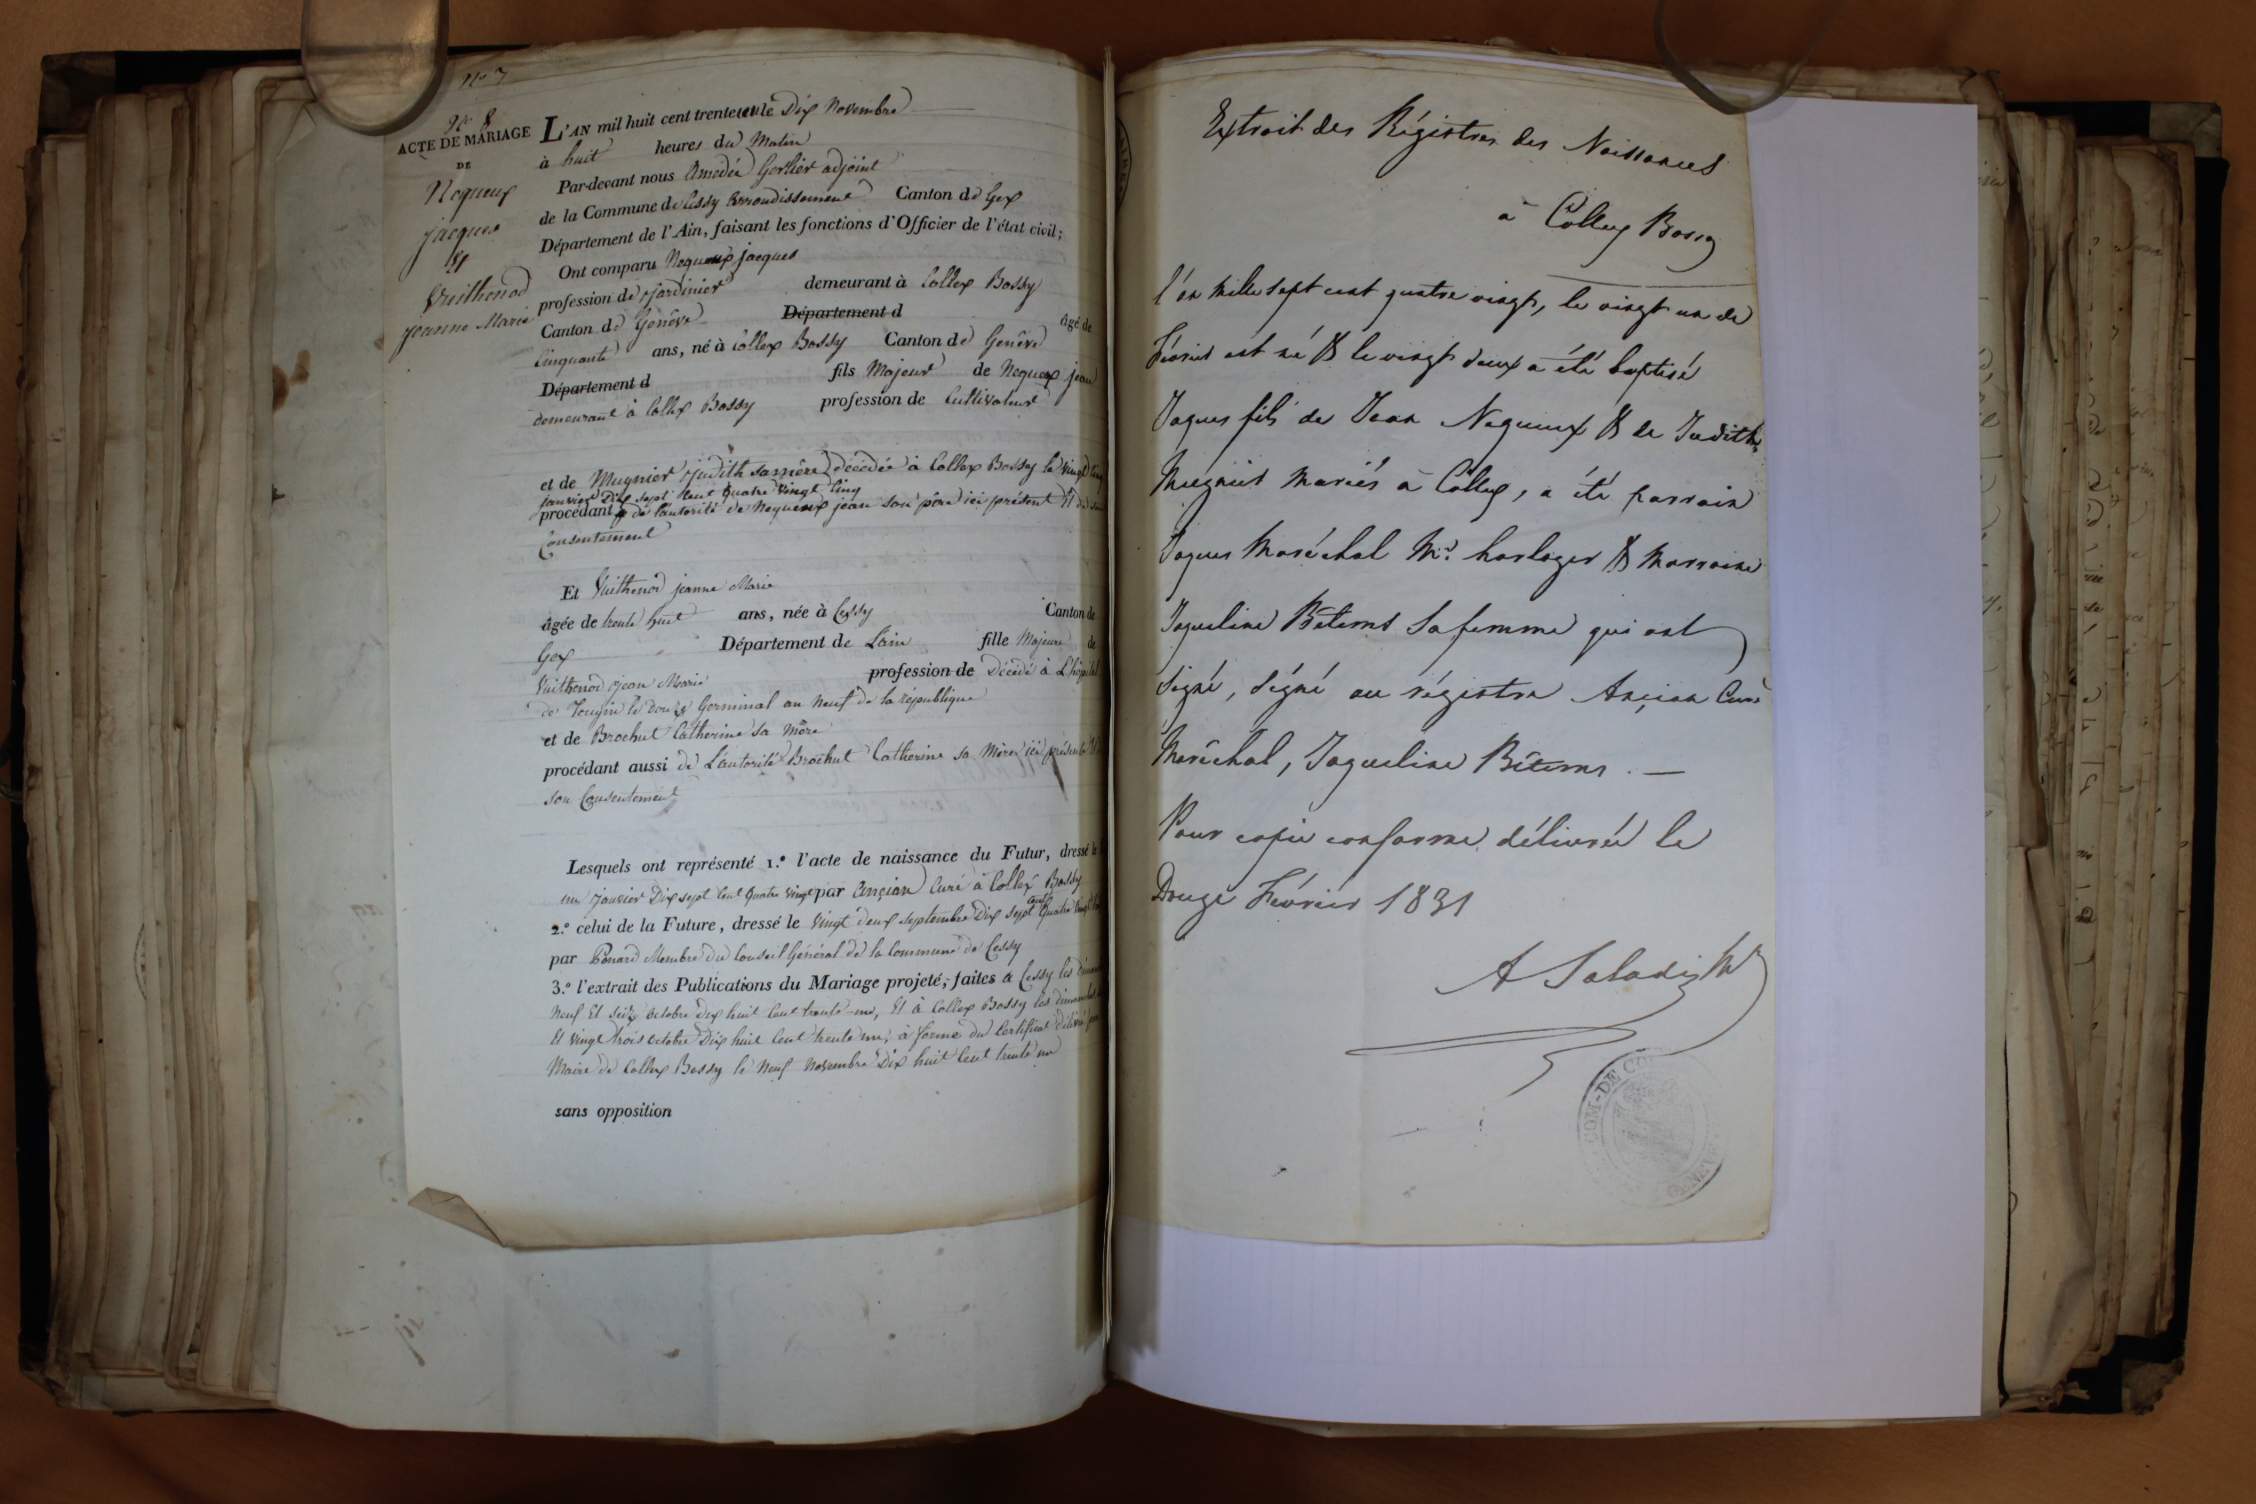 N° 7
N° 8
ACTE DE MARIAGE
DE
Noqueux
jacques
&
Vuithenod
jeanne Marie
L'AN mil huit cent trente et un le Dix Novembre
à huit heures du Matin
Par-devant nous Amedée Gerlier adjoint
de la Commune de Cessy Arrondissement Canton de Gex
Département de l'Ain, faisant les fonctions d'Officier de l'état civil;
Ont comparu Noqueux jacques
profession de jardinier demeurant à Collex Bossy
Canton de Genêve Département d âgé de
Cinquante ans, né à Collex Bossy Canton de Genêve
Département d fils Majeur de Noqueux jean
demeurant à Collex Bossy profession de Cultivateur
et de Mugnier Judith sa mère décédée à Collex Bossy le vingt cinq
janvier Dix sept Cent Quatre vingt Cinq
procédant de l'autorité de Noqueux jean son père ici présent Et de son
Consentement
Et Vuithenod jeanne Marie
âgée de trente huit ans, née à Cessy Canton de
Gex Département de Lain fille Majeure de
Vuithenod jean Marie profession de Décédé à L'hopital
de le Douze Germinal an neuf de la république
et de Brochut Catherine sa Mère
procédant aussi de L'autorité Brochut Catherine sa Mère ici présente
son Consentement
Lesquels ont représenté 1.° l'acte de naissance du Futur, dressé le
un janvier Dix sept Cent Quatre vingt par Ançian Curé à Collex Bossy
2.° celui de la Future, dressé le vingt deux septembre Dix sept cent Quatre vingt
par Ponard Membre du Conseil Général de la Commune de Cessy
3.° l'extrait des Publications du Mariage projeté, faites à Cessy les
Neuf Et seize octobre Dix huit Cent trente-un, Et à Collex Bossy les dimanches
Et vingt trois octobre Dix huit Cent trente un, à forme du Certificat délivré
Maire de Collex Bossy le Neuf Novembre Dix huit Cent trente un
sans opposition
Extrait des Régistres des Naissances
à Collex Bossy
l'an mille sept cent quatre vingt, le vingt un de
Février est né & le vingt deux a été baptisé
Jaques fils de Jean Noqueux & de Judith
Meugnier mariés à Collex, a été parrain
Jaques Maréchal Md. horloger & Marraine
Jaqueline Bétems sa femme qui ont
signé, signé au régistre Ançian Curé
Maréchal, Jaqueline Bétems. —
Pour copie conforme délivrée le
Douze Février 1831
A Saladin Mre
COM-DE CO
GENEVE